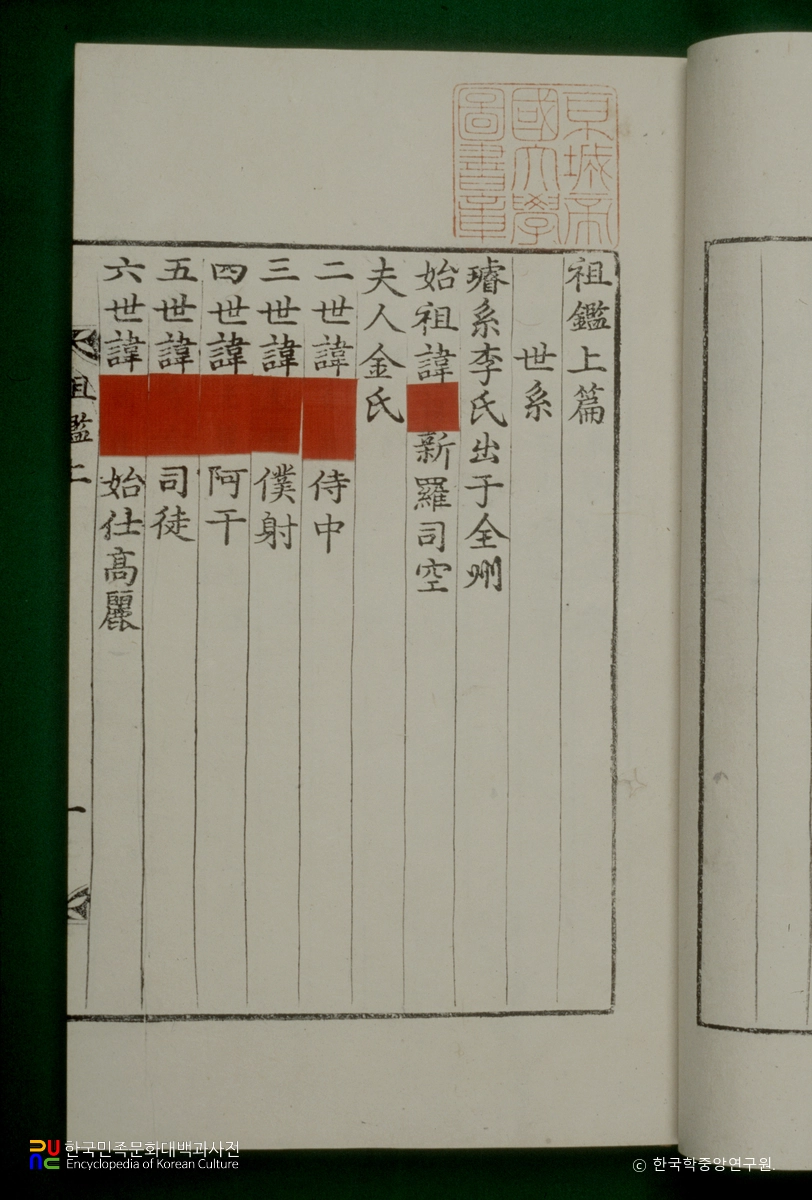 京城帝
國大學
圖書章
祖鑑上篇
世系
璿系李氏出于全州
始祖諱 新羅司空
夫人金氏
二世諱 侍中
三世諱 僕射
四世諱 阿干
五世諱 司徒
六世諱 始仕高麗
祖鑑上
一
한국민족문화대백과사전
Encyclopedia of Korean Culture
© 한국학중앙연구원.